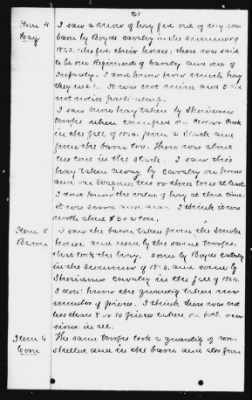 21
Item 4 I saw a mow of hay fed out of my own
Hay barn by Boyds cavalry in the summer of
1863. They fed their horses, there was said
to be two Regiments of cavalry and one of
Infantry. I dont know how much hay
they used. It was not mine and I did
not notice particularly.
I saw some hay taken by Sheridans
troops when camped on
in the fall of 1864 from a stack and
from the barn too. There was about
two tons in the stack. I saw this
hay taken away by cavalry on horses
and in wagons, two or three tons at least.
I dont know the value of hay at that time
it was scarce and dear. I think it was
worth about $20 a ton.
Item 5 I saw the bacon taken from the smoke
Bacon house and used by the same troops
that took the hay. Some by Boyds cavalry
in the summer of 1863, and some by
Sheridans cavalry in the fall of 1864.
I dont know the quantity taken nor
number of pieces. I think there was not
less than 8 or 10 pieces taken on both occa-
sions in all.
Item 6 The same troops took a quantity of corn
Corn shelled and in the barn and also from